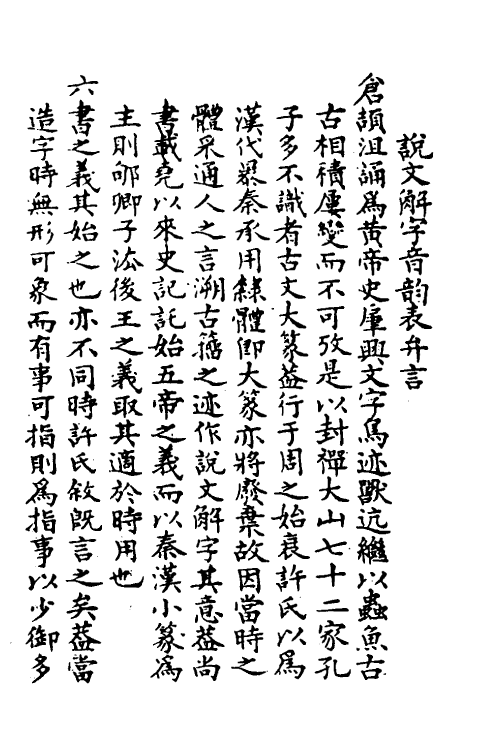 說文解字音韵表弁言
倉頡沮誦爲黄帝史庫興文字鳥迹獸远繼以蟲魚古
古相積屢變而不可攷是以封禪大山七十二家孔
子多不識者古文大篆葢行于周之始衰許氏以爲
漢代㬪秦承用隸體卽大篆亦將廢棄故因當時之
體采通人之言溯古籒之迹作說文解字其意葢尚
書載堯以來史記託始五帝之義而以秦漢小篆爲
主則郇卿子㳒後王之義取其適於時用也
六書之義其始之也亦不同時許氏敘旣言之矣葢當
造字時無形可象而有事可指則爲指事以少御多